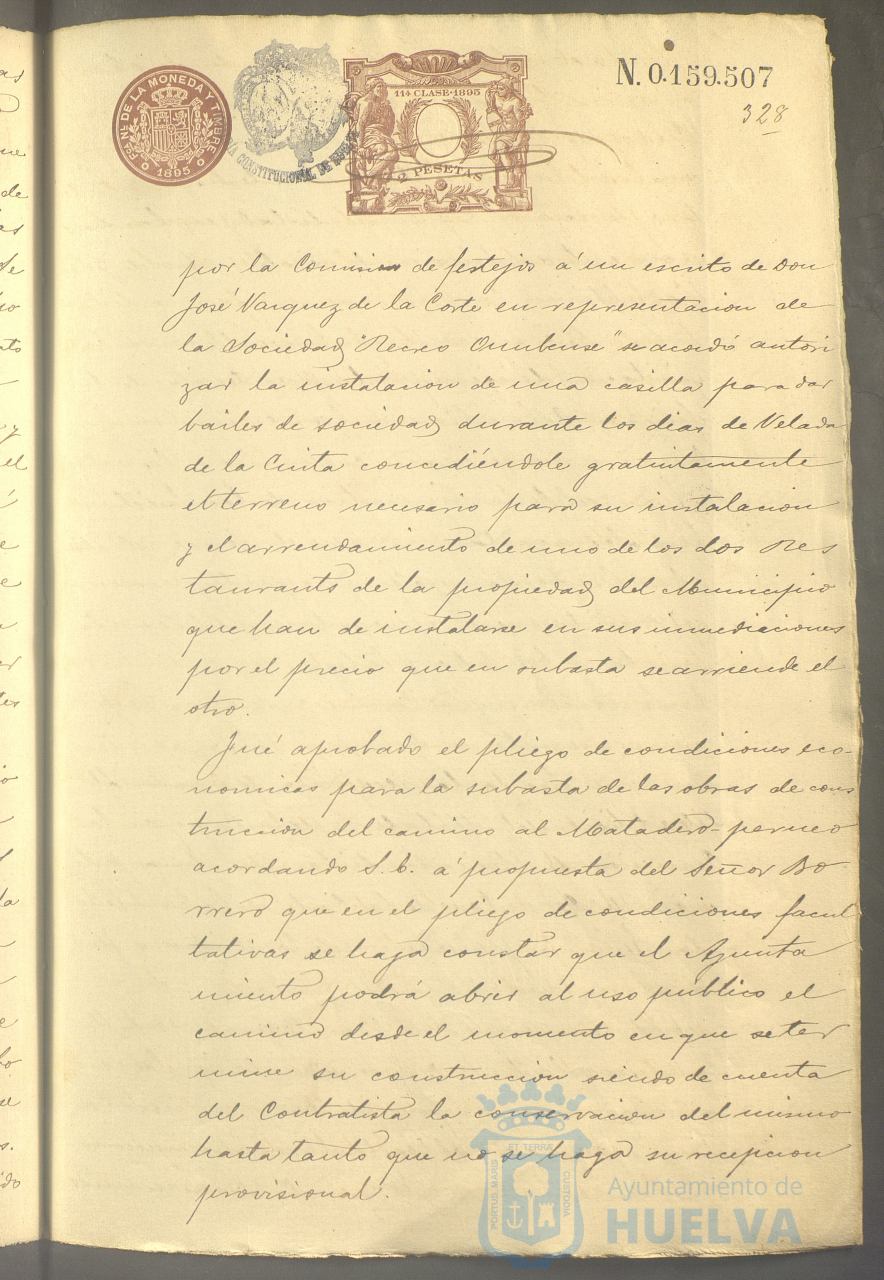 FCA. NAL. DE LA MONEDA Y TIMBRE
1895
CONSTITUCIONAL DE HUELVA
11ª CLASE·1895
2 PESETAS
N. 0.159.507
328
por la Comision de festejos á un escrito de Don
José Vazquez de la Corte en representacion de
la Sociedad "Recreo Onubense" se acordó autori
zar la instalacion de una casilla para dar
bailes de sociedad durante los dias de Velada
de la Cinta concediéndole gratuitamente
el terreno necesario para su instalacion
y el arrendamiento de uno de los dos Res
taurants de la propiedad del Municipio
que han de instalarse en sus inmediaciones
por el precio que en subasta se arriende el
otro.
Fué aprobado el pliego de condiciones eco-
nomicas para la subasta de las obras de cons
truccion del camino al Matadero
acordando S. E. á propuesta del Señor Bo
rrero que en el pliego de condiciones facul
tativas se haga constar que el Ayunta
miento podrá abrir al uso público el
camino desde el momento en que se ter
mine su construccion siendo de cuenta
del Contratista la conservacion del mismo
hasta tanto que no se haga su recepcion
provisional.
PORTUS MARIS
ET TERRÆ
CUSTODIA
Ayuntamiento de
HUELVA